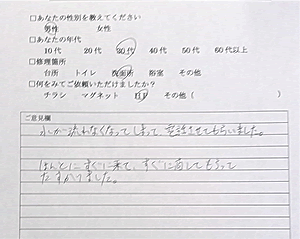 □あなたの性別を教えてください
男性 女性
□あなたの年代
10代 20代 30代 40代 50代 60代以上
□修理箇所
台所 トイレ 洗面所 浴室 その他
□何をみてご依頼いただけましたか?
チラシ マグネット HP その他( )
ご意見欄
水が流れなくなってしまって、電話させてもらいました。
ほんとにすぐに来て、すぐに直してもらって
たすかりました。